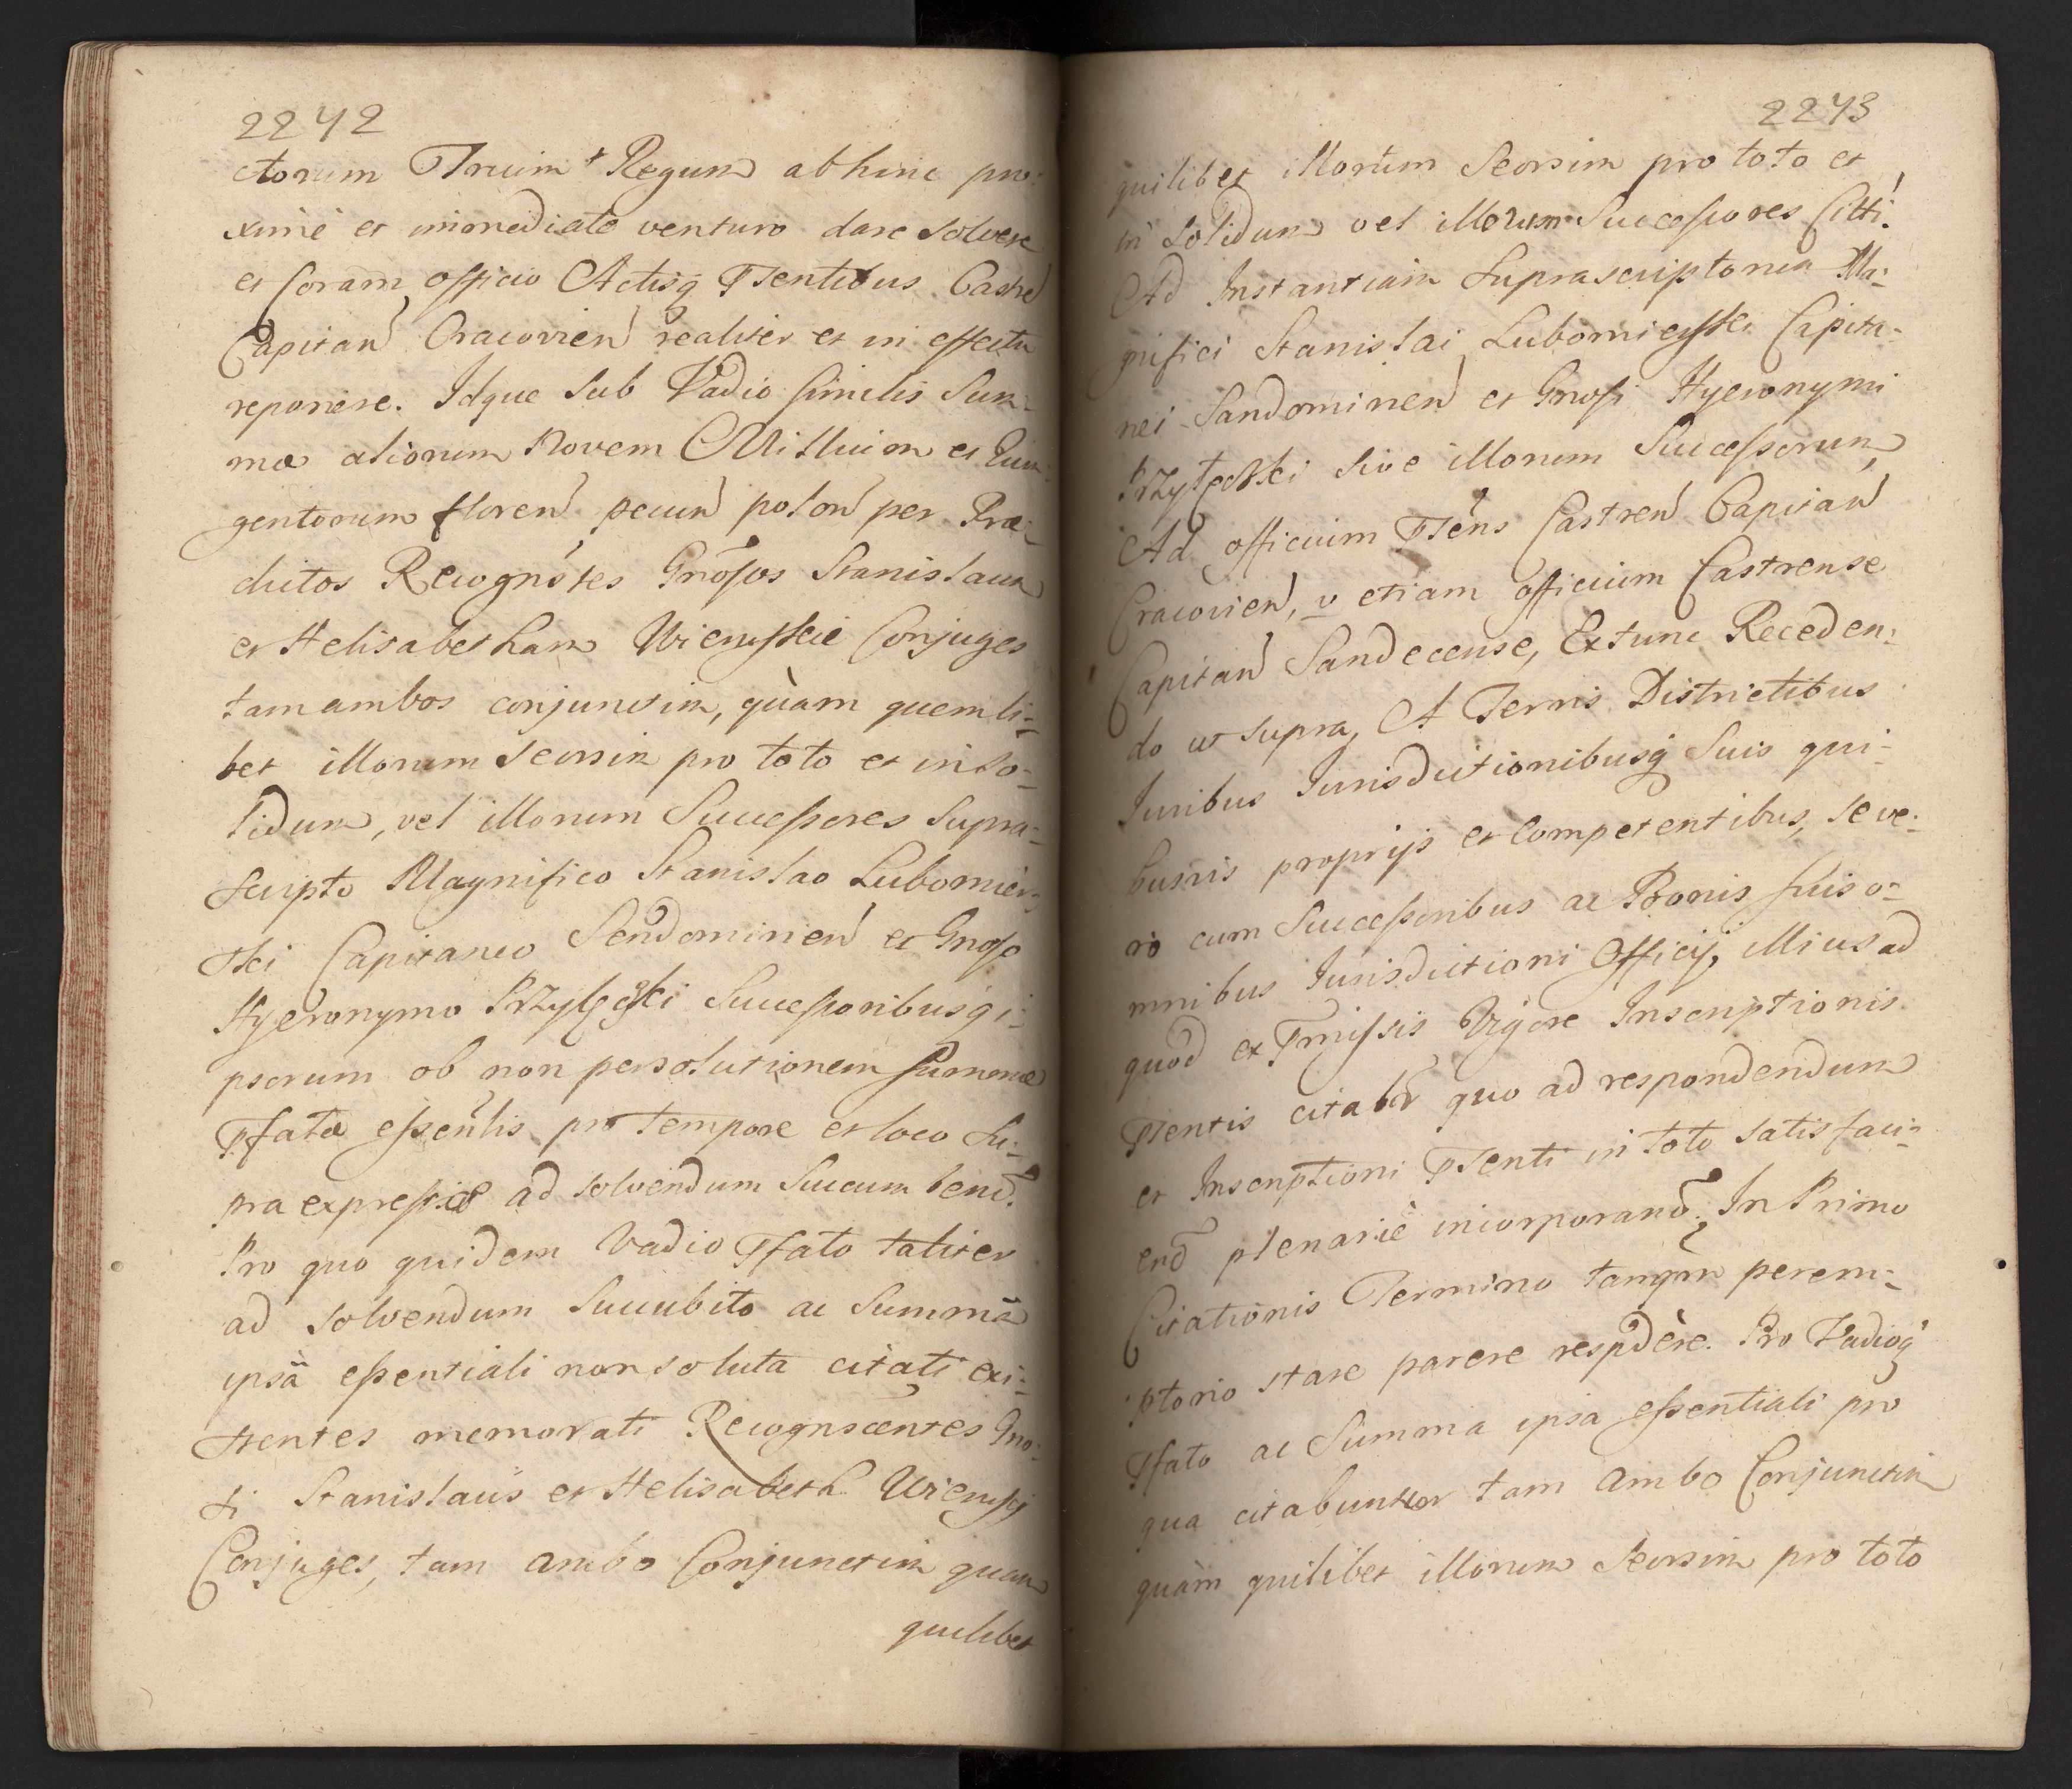 2242
ctorum Trium Regum abhinc pro:
xime et immediate venturo dare solvere
et Coram officio Actisq Pñsentibus Castren
Capitan Cracovien realiter et in effectu
reponere. Idque sub Vadio similis Sum:
mæ aliorum Novem Millium et Quin:
gentorum floren pecun polon per Præ:
dictos Recogñtes Gñosos Stanislaum
et Helisabetham Wiemsskie Conjuges
tam ambos conjunctim, quàm quemli:
bet illorum seorsim pro toto et in so:
lidum, vel illorum Successores supra:
scripto Magnifico Stanislao Lubomier:
ski Capitaneo Sendomirien et Gnoso
Hyeronymo Przyłęcki Successoribusq i:
psorum ob non persolutionem summæ
Pfatæ esseñlis pro tempore et loco su:
pra expressis ad solvendum Succumbend.
Pro quo quidem Vadio Pfato taliter
ad solvendum Succubito ac Summã
ipsã essentiali non soluta citati exi:
stentes memorati Recognscentes Gno:
si Stanislaus et Helisabeth
Conjuges, tam ambo Conjunctim quam
quilibet
2243
quilibet illorum Seorsim pro toto et
in solidum vel illorum Successores Citti.
Ad Instantiam Suprascriptorum Ma:
gnifici Stanislai Lubomierski Capita:
nei Sandomirien et Gnosi Hyeronymi
Przyłęcki sive illorum Successorum,
Ad officium Psens Castren Capitan
Cracovien, v etiam officium Castrense
Capitan Sandecense, Extunc Receden:
do ut supra, A Terris Districtibus
Iuribus Iurisdictionibusq Suis qui:
busvis proprijs et Competentibus, se ve:
ro cum Successoribus ac Bonis suis o:
mnibus Iurisdictioni Officij, illius ad
quod ex Pmissis Vigore Inscriptionis
Psentis citabr quo ad respondendum
et Inscriptioni Psenti in toto satisfaci:
end plenariè incorporand; In Primo
Citationis Termino tanqm perem:
ptorio stare parere respdère. Pro Vadioq
Pfato ac Summa ipsa essentiali pro
qua citabuntur tam ambo Conjunctim
quàm quilibet illorum Seorsim pro toto